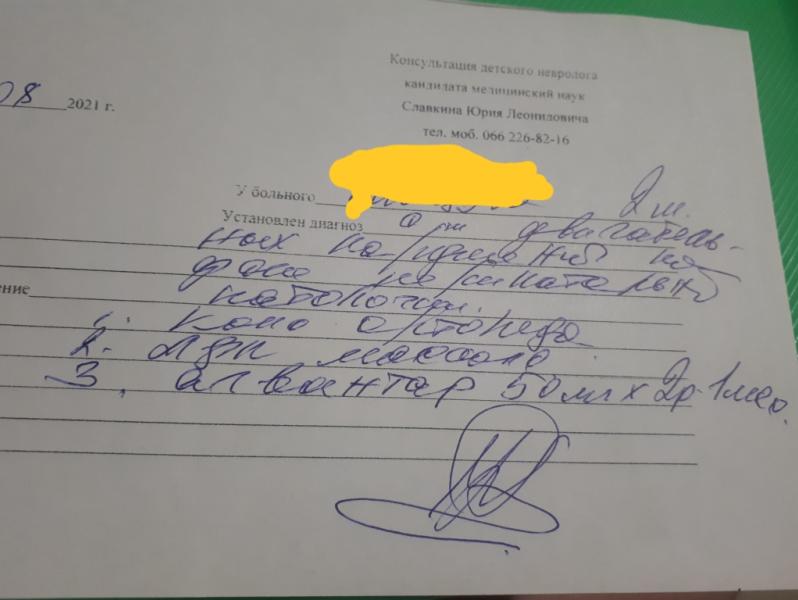 Консультация детского невролога
кандидата медицинский наук
08 2021 г.
Славкина Юрия Леонидовича
тел. моб. 066 226-82-16
У больного 2 м.
Установлен диагноз двигатель-
ных нарушений на
фоне перинатальной
патологии.
ение
1. Конс ортопеда
2. массаж
3. алвантар 50 мг х 2р-1мес.